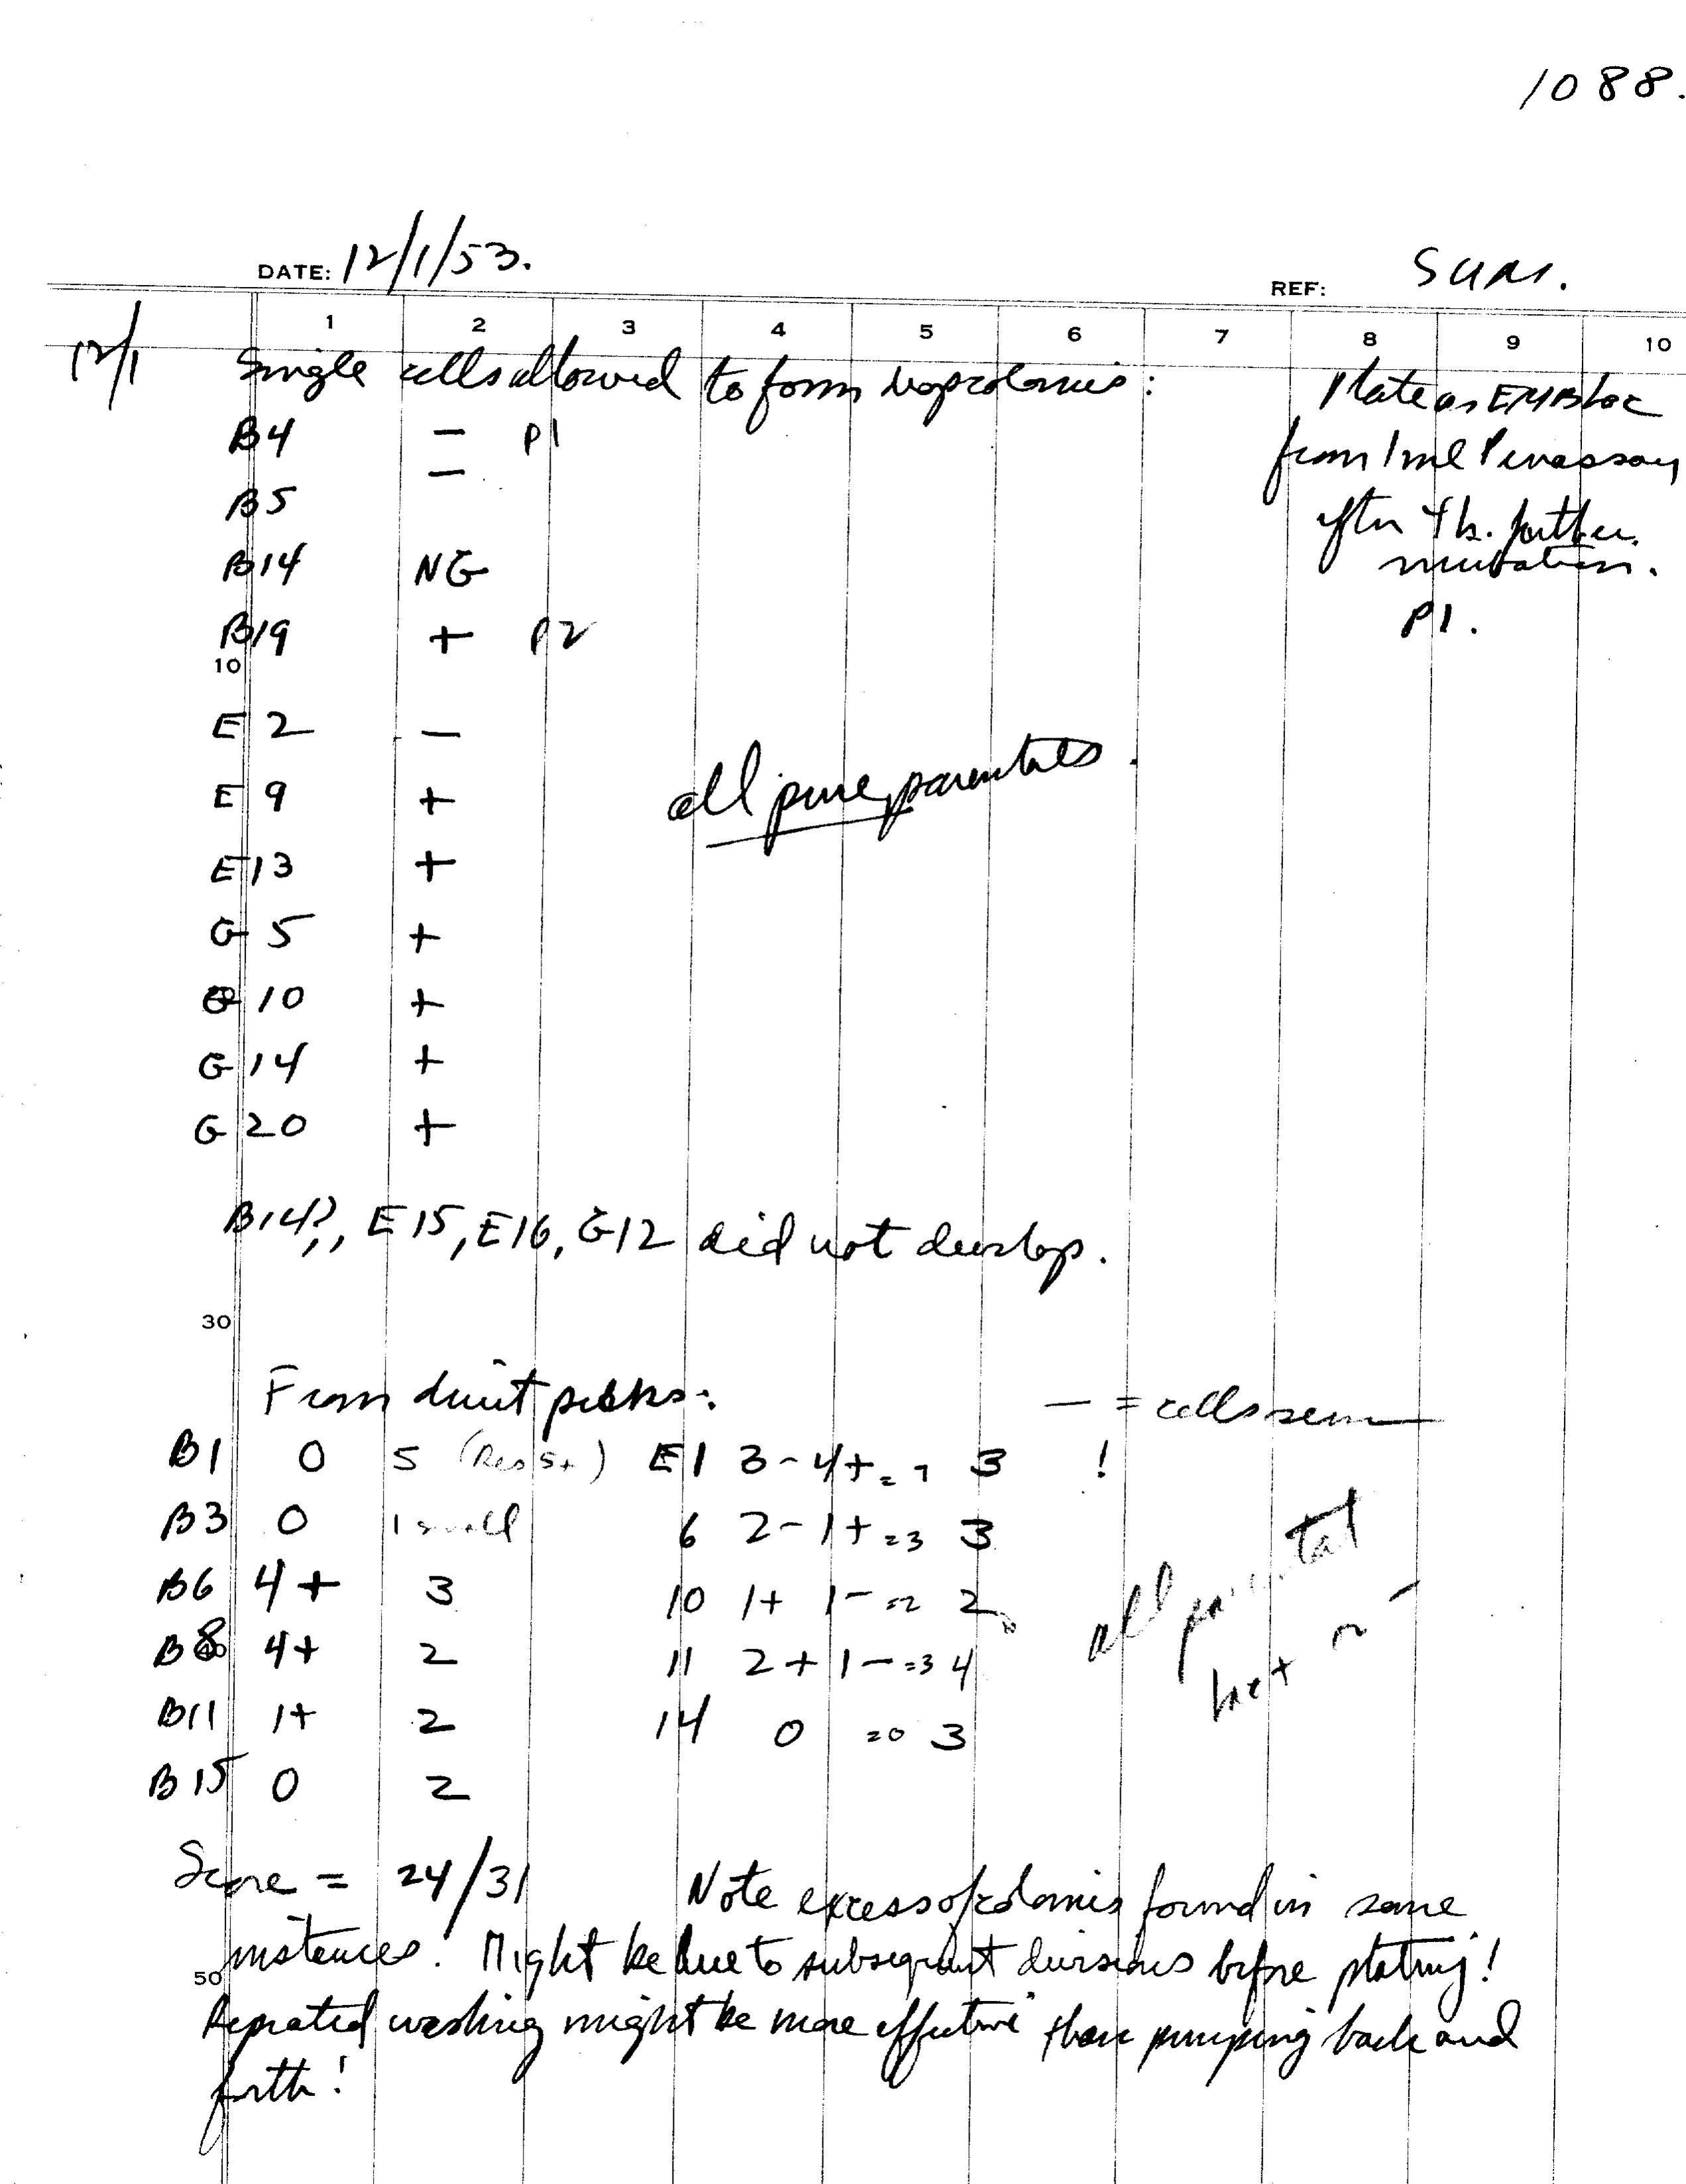 1088.
DATE: 12/1/53.
REF:
1 2 3 4 5 6 7 8 9 10
12/1 Single cells allowed to form :
Plate on EMB Lac
from 1 ml Penassay
after 4 h. further
incubation.
P1.
B4 — P1
—
B5
B14 NG
B19 + P2
10
E 2 —
E 9 +
all pure parentals.
E 13 +
G 5 +
G 10 +
G 14 +
G 20 +
B14?,, E15, E16, G12 did not develop.
30
From direct picks:
— = cells seen
B1 0 5 E1 3- 4+ = 7 3 !
B3 0 1 small 6 2- 1+ =3 3
B6 4+ 3 10 1+ 1- =2 2
B8 4+ 2 11 2+ 1- =3 4
B11 1+ 2 14 0 =0 3
B15 0 2
all parental
Score = 24/31 Note excess of colonies found in some
instances. Might be due to subsequent divisions before plating!
50
Repeated washing might be more effective than pumping back and
forth!